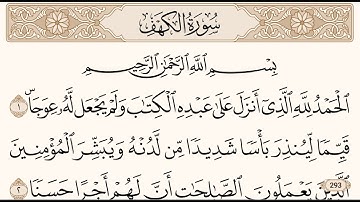 سُورَةُ الكَهْفِ
بِسْمِ اللَّهِ الرَّحْمَٰنِ الرَّحِيمِ
الْحَمْدُ لِلَّهِ الَّذِي أَنزَلَ عَلَىٰ عَبْدِهِ الْكِتَٰبَ وَلَمْ يَجْعَل لَّهُۥ عِوَجَاۜ ١
قَيِّمًا لِّيُنذِرَ بَأْسًا شَدِيدًا مِّن لَّدُنْهُ وَيُبَشِّرَ الْمُؤْمِنِينَ
الَّذِينَ يَعْمَلُونَ الصَّٰلِحَٰتِ أَنَّ لَهُمْ أَجْرًا حَسَنًا ٢
293